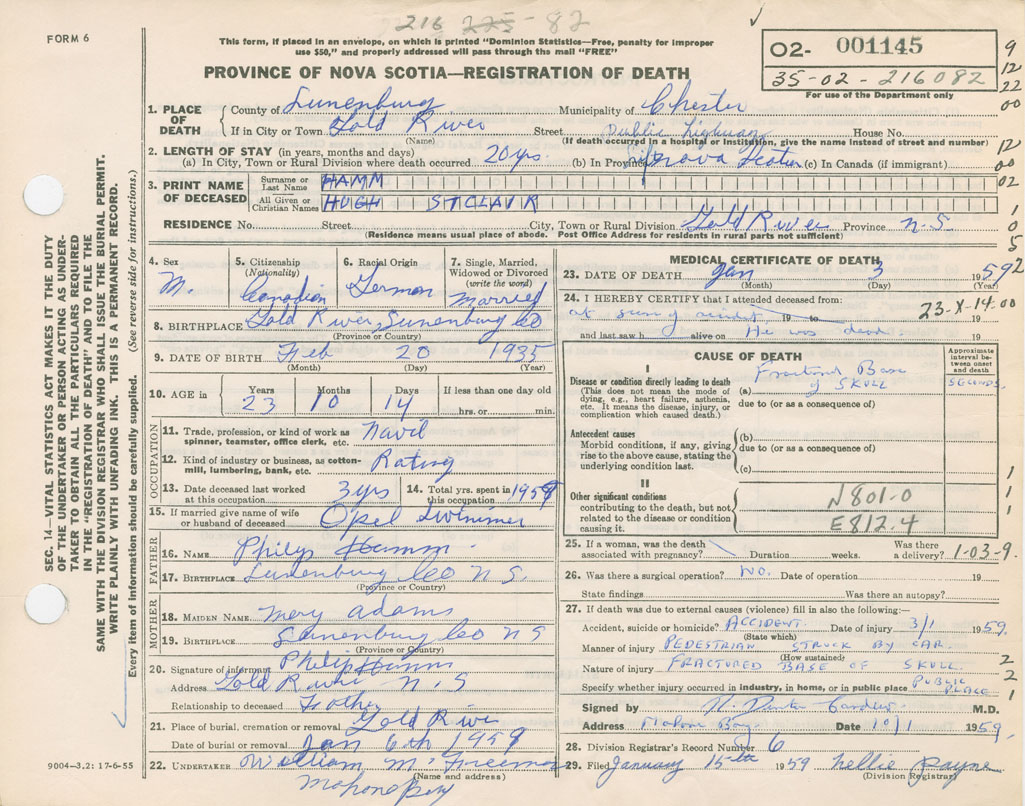 216 225-82
FORM 6
This form, if placed in an envelope, on which is printed "Dominion Statistics—Free, penalty for improper
use $50," and properly addressed will pass through the mail "FREE"
PROVINCE OF NOVA SCOTIA—REGISTRATION OF DEATH
O2- 001145
35-02-216082
For use of the Department only
9
12
22
00
12
00
02
1
0
5
2
1. PLACE OF DEATH County of Lunenburg Municipality of Chester
If in City or Town Gold River Street Public highway House No.
(Name) (If death occurred in a hospital or institution, give the name instead of street and number)
2. LENGTH OF STAY (in years, months and days)
(a) In City, Town or Rural Division where death occurred 20 yrs. (b) In Province Nova Scotia (c) In Canada (if immigrant)
3. PRINT NAME OF DECEASED
Surname or Last Name HAMM
All Given or Christian Names HUGH ST CLAIR
RESIDENCE No. Street City, Town or Rural Division Gold River Province N.S.
(Residence means usual place of abode. Post Office Address for residents in rural parts not sufficient)
4. Sex M.
5. Citizenship (Nationality) Canadian
6. Racial Origin German
7. Single, Married, Widowed or Divorced (write the word) Married
8. BIRTHPLACE Gold River, Lunenburg Co
(Province or Country)
9. DATE OF BIRTH Feb 20 1935
(Month) (Day) (Year)
10. AGE in Years 23 Months 10 Days 14 If less than one day old hrs. or min.
OCCUPATION
11. Trade, profession, or kind of work as spinner, teamster, office clerk, etc. Naval
12. Kind of industry or business, as cotton-mill, lumbering, bank, etc. Rating
13. Date deceased last worked at this occupation 3 yrs
14. Total yrs. spent in this occupation 1959
15. If married give name of wife or husband of deceased Opel
FATHER
16. NAME Philip Hamm
17. BIRTHPLACE Lunenburg Co N.S.
(Province or Country)
MOTHER
18. MAIDEN NAME Mary Adams
19. BIRTHPLACE Lunenburg Co N S
(Province or Country)
20. Signature of informant Philip Hamm
Address Gold River N.S
Relationship to deceased Father
21. Place of burial, cremation or removal Gold River
Date of burial or removal Jan 6th 1959
22. UNDERTAKER William M. Freeman
(Name and address)
Mahone Bay
9004—3.2: 17-6-55
MEDICAL CERTIFICATE OF DEATH
23. DATE OF DEATH Jan 3 1959
(Month) (Day) (Year)
24. I HEREBY CERTIFY that I attended deceased from:
at scene of accident 19 to 19
23-X-14-00
and last saw h alive on He was dead. 19
CAUSE OF DEATH
Approximate interval between onset and death
I
Disease or condition directly leading to death
(This does not mean the mode of dying, e.g., heart failure, asthenia, etc. It means the disease, injury, or complication which caused death.)
(a) Fractured Base of SKULL SECONDS
due to (or as a consequence of)
Antecedent causes
Morbid conditions, if any, giving rise to the above cause, stating the underlying condition last.
(b)
due to (or as a consequence of)
(c)
II
Other significant conditions
contributing to the death, but not related to the disease or condition causing it.
N801-0
E812.4
1
1
1
1
25. If a woman, was the death associated with pregnancy? Duration weeks. Was there a delivery? 1-03-9.
26. Was there a surgical operation? NO. Date of operation 19
State findings Was there an autopsy?
27. If death was due to external causes (violence) fill in also the following:—
Accident, suicide or homicide? ACCIDENT Date of injury 3/1 1959.
(State which)
Manner of injury PEDESTRIAN STRUCK BY CAR.
(How sustained)
Nature of injury FRACTURED BASE OF SKULL.
Specify whether injury occurred in industry, in home, or in public place PUBLIC PLACE
2
2
1
Signed by M.D.
Address Mahone Bay Date 10/1 1959.
28. Division Registrar's Record Number 6
29. Filed January 15th 1959 Nellie Payne
(Division Registrar)
SEC. 14—VITAL STATISTICS ACT MAKES IT THE DUTY
OF THE UNDERTAKER OR PERSON ACTING AS UNDER-
TAKER TO OBTAIN ALL THE PARTICULARS REQUIRED
IN THE "REGISTRATION OF DEATH" AND TO FILE THE
SAME WITH THE DIVISION REGISTRAR WHO SHALL ISSUE THE BURIAL PERMIT.
WRITE PLAINLY WITH UNFADING INK. THIS IS A PERMANENT RECORD.
Every item of information should be carefully supplied. (See reverse side for instructions.)